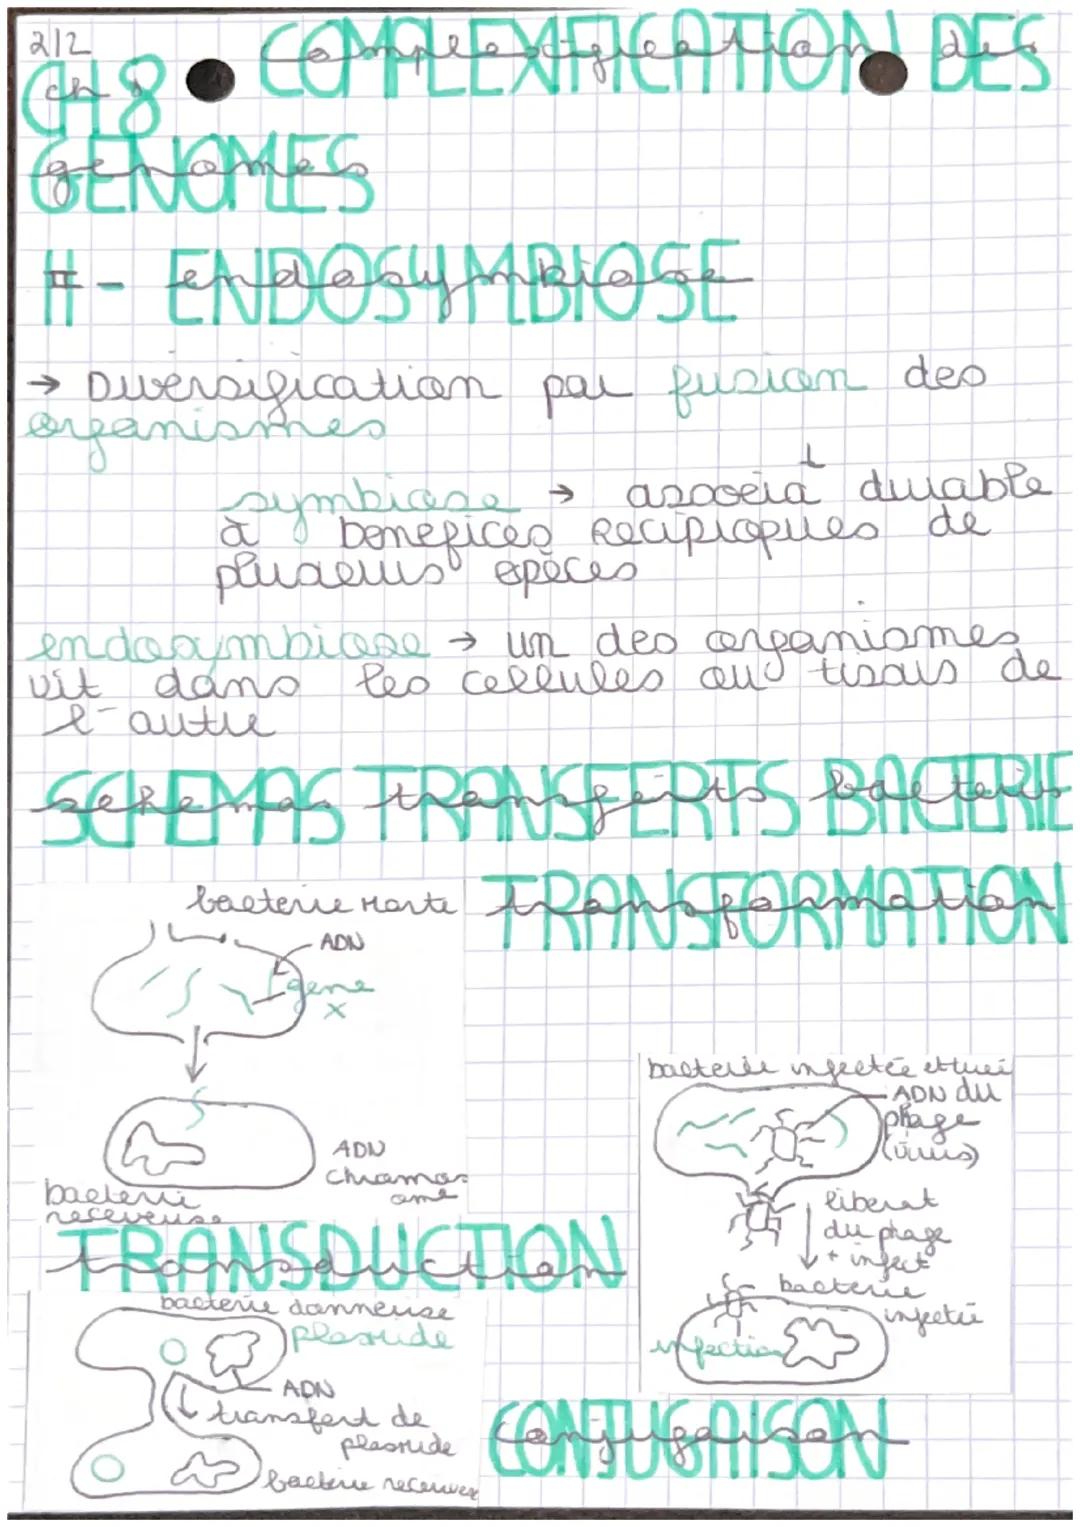 2/2
CH 8 COMPLEXIFICATION DES
GENOMES
II - ENDOSYMBIOSE
→ Diversification par fusion des
organismes
symbiose → associat° durable
à benefices Reciproques de
plusieurs espèces
endosymbiose → un des organismes
vit dans les cellules ou tissus de
l'autre
SCHEMAS TRANSFERTS BACTERIE
TRANSFORMATION
bacterie Morte
ADN
gene
x
ADN
chromos
ome
bacterie
receveuse
bacterie infectée et tuée
ADN du
phage
(virus)
liberat°
du phage
+ infect°
bacterie
infectée
infection
TRANSDUCTION
bacterie donneuse
plasmide
ADN
transfert de
plasmide
bacterie receveuse
CONJUGAISON